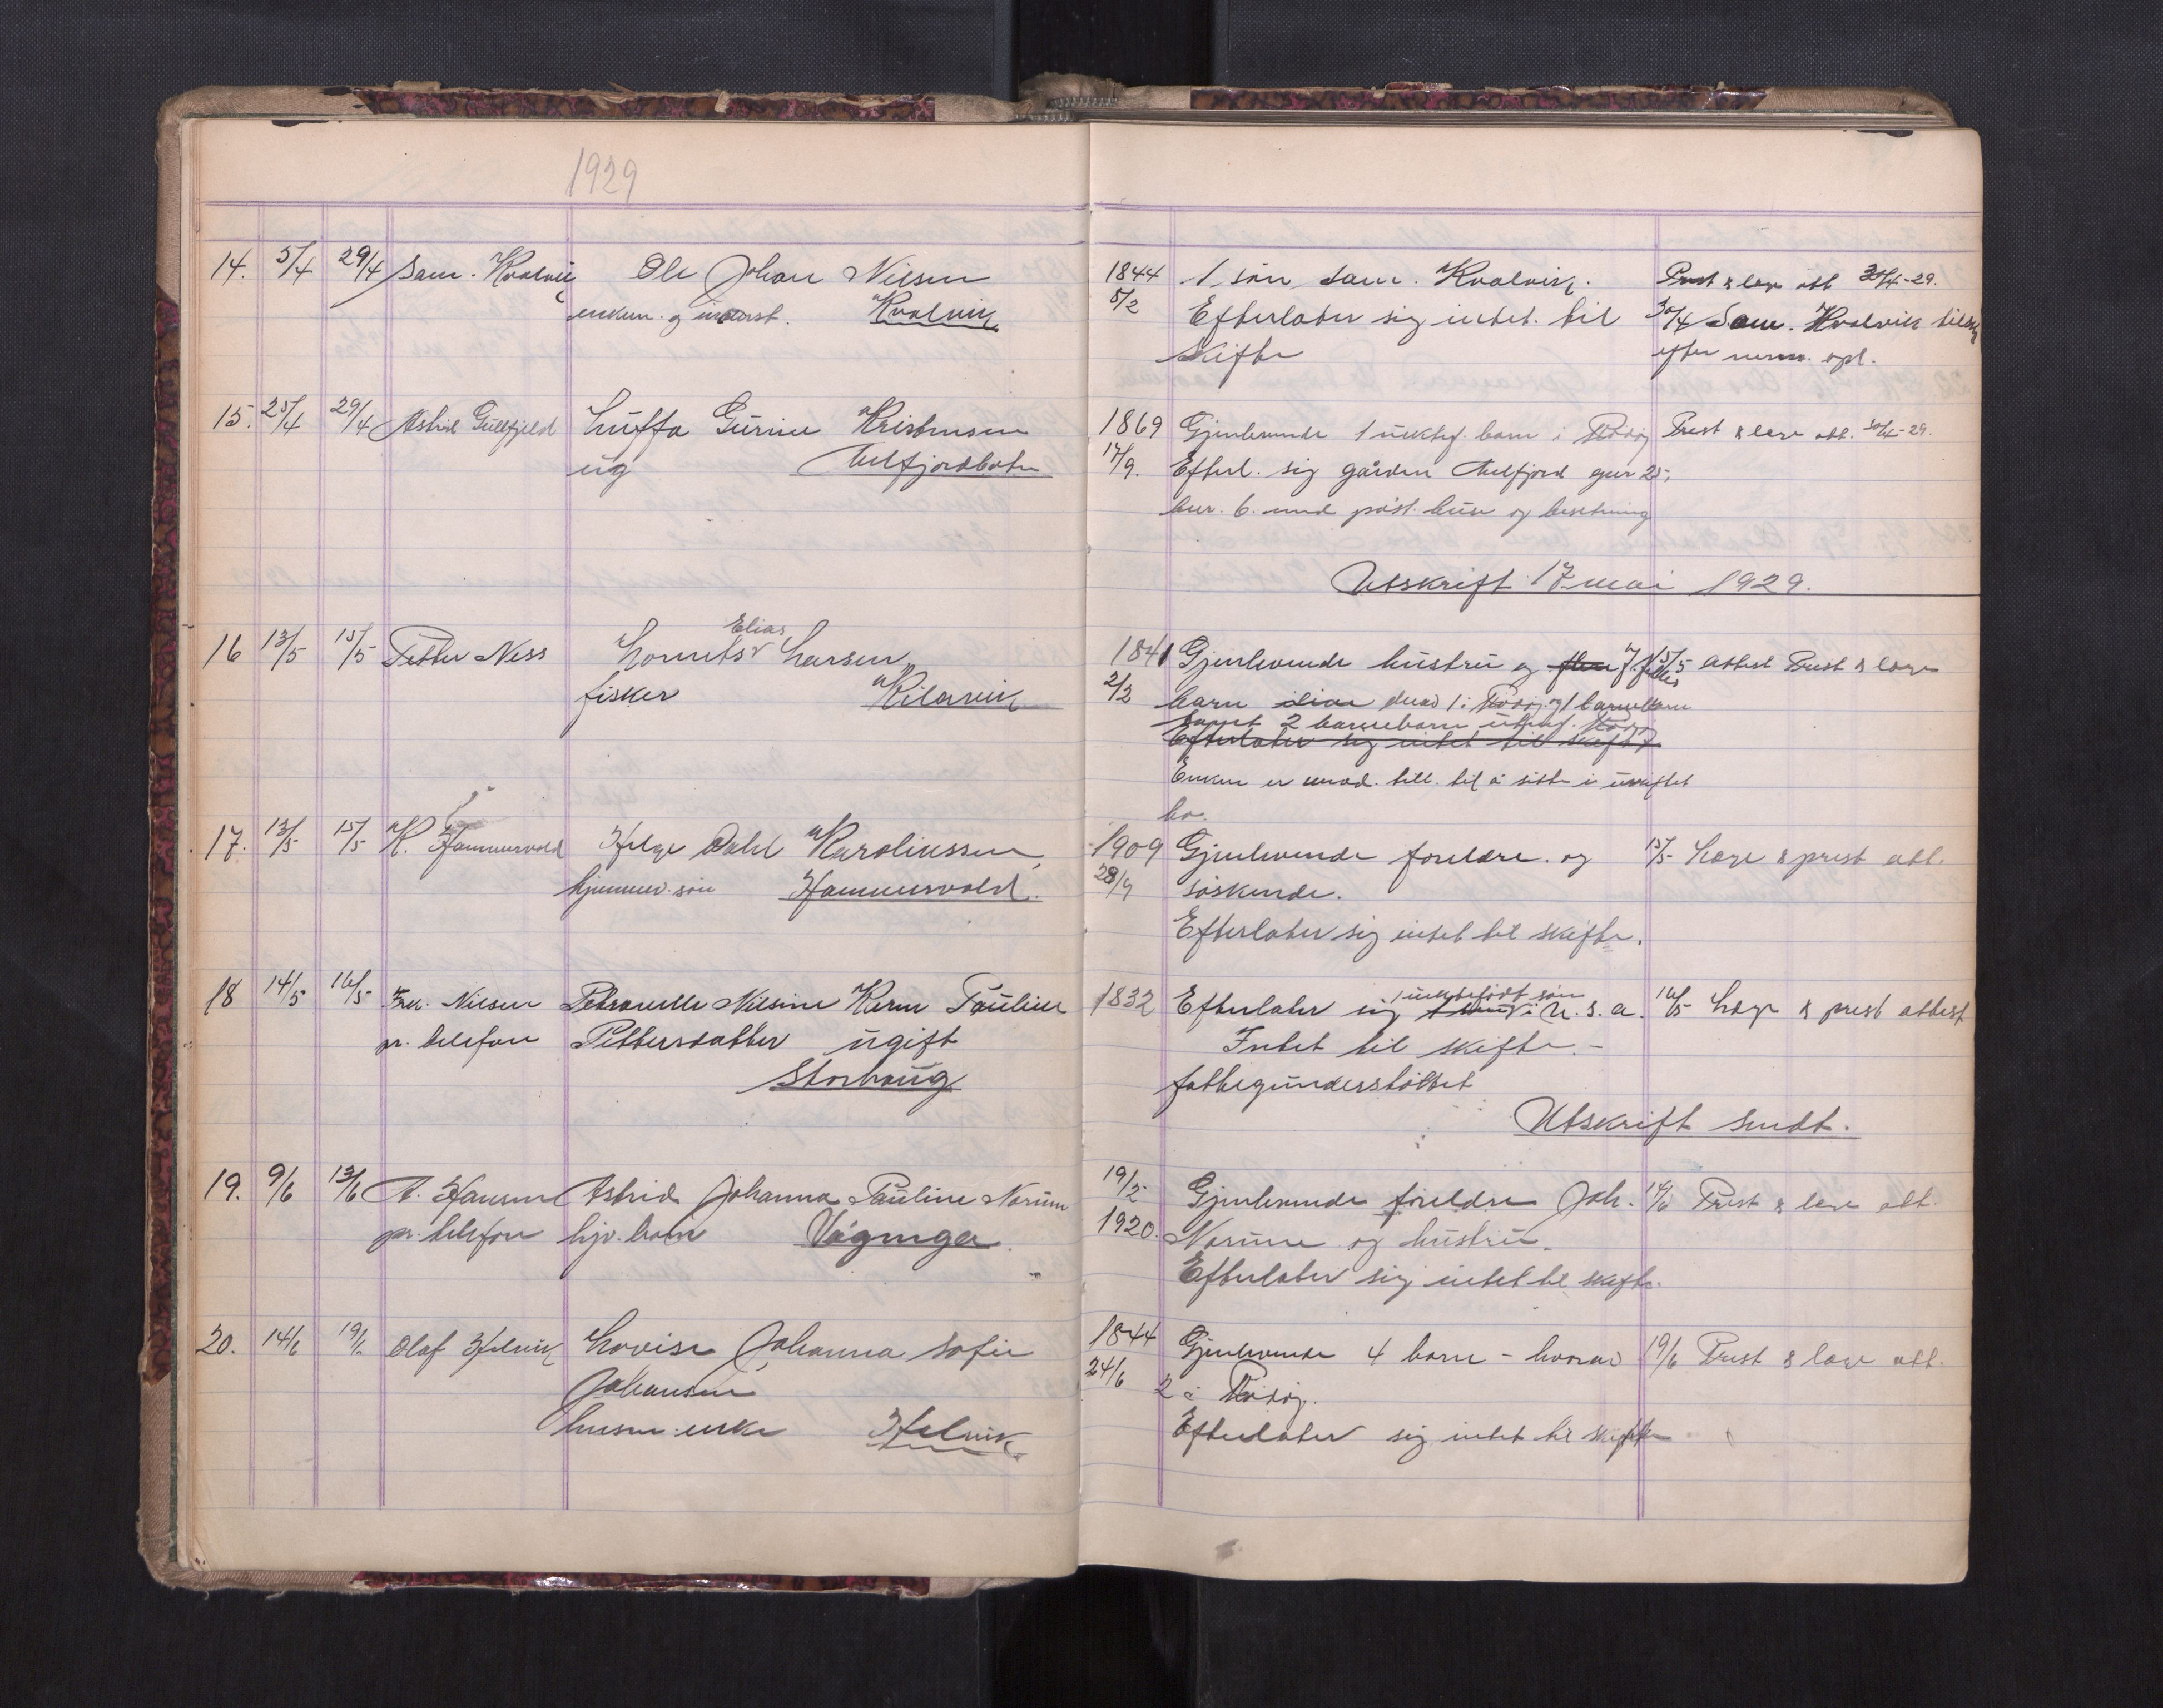 1929
14. 5/4 29/4 Sam. Kvalvik Ole Johan Nilsen
enkem. og inderst. Kvalvik
1844 1 søn Sam. Kvalvik. Prest & læge att. 30/4-29.
5/2 Efterlater sig intet til 30/4 Sam. Kvalvik
skifte efter opl.
15. 25/4 29/4 Astrid Gullfjeld Luffa Gurine Kristensen
ug Melfjordbotn
1869 Gjenlevende 1 uektef. barn i Rødøy Prest & læge att. 30/4-29.
17/9. Efterl. sig gården Melfjord gnr 25,
bnr. 6. med påst. huse og besetning
Utskrift 17 mai 1929.
16 13/5 15/5 Petter Ness Elias
Lornts Larsen
fisker Kilavik
1841 Gjenlevende hustru og 7 felles 15/5 attest Prest & læge
2/2 barn derav 1 i Rødøy og 1 barnebarn
samt 2 barnebarn Rødøy
Efterlater sig intet til skifte
Enken er till. til å sitte i uskiftet
bo.
17. 13/5 15/5 K. Hammervold Helge Dahl Karolinssen
hjemmev. søn Hammervold.
1909 Gjenlevende foreldre og 15/5 Læge & prest att.
28/9 søskende.
Efterlater sig intet til skifte.
18 14/5 16/5 Fr. Nilsen Petronelle Nilsine Karen Pauline
pr. telefon Pettersdatter ugift
Storhaug
1 uektefødt søn
1832 Efterlater sig i U.S.A. 16/5 Læge & prest attest
Intet til skifte.-
fattigunderstøttet
Utskrift sendt.
19. 9/6 13/6 A. Hansen Astrid Johanna Pauline Norum
pr. telefon hjv. barn Vågnga
19/2 Gjenlevende foreldre Joh. 14/6 Prest & læge att.
1920. Norum og hustru.
Efterlater sig intet til skifte.
20. 14/6 19/6 Olaf Selvik Lovise Johanna Sofie
Johansen
husm. enke Selvik
1844 Gjenlevende 4 barn - hvorav 19/6 Prest & læge att.
24/6 2 i Rødøy.
Efterlater sig intet til skifte